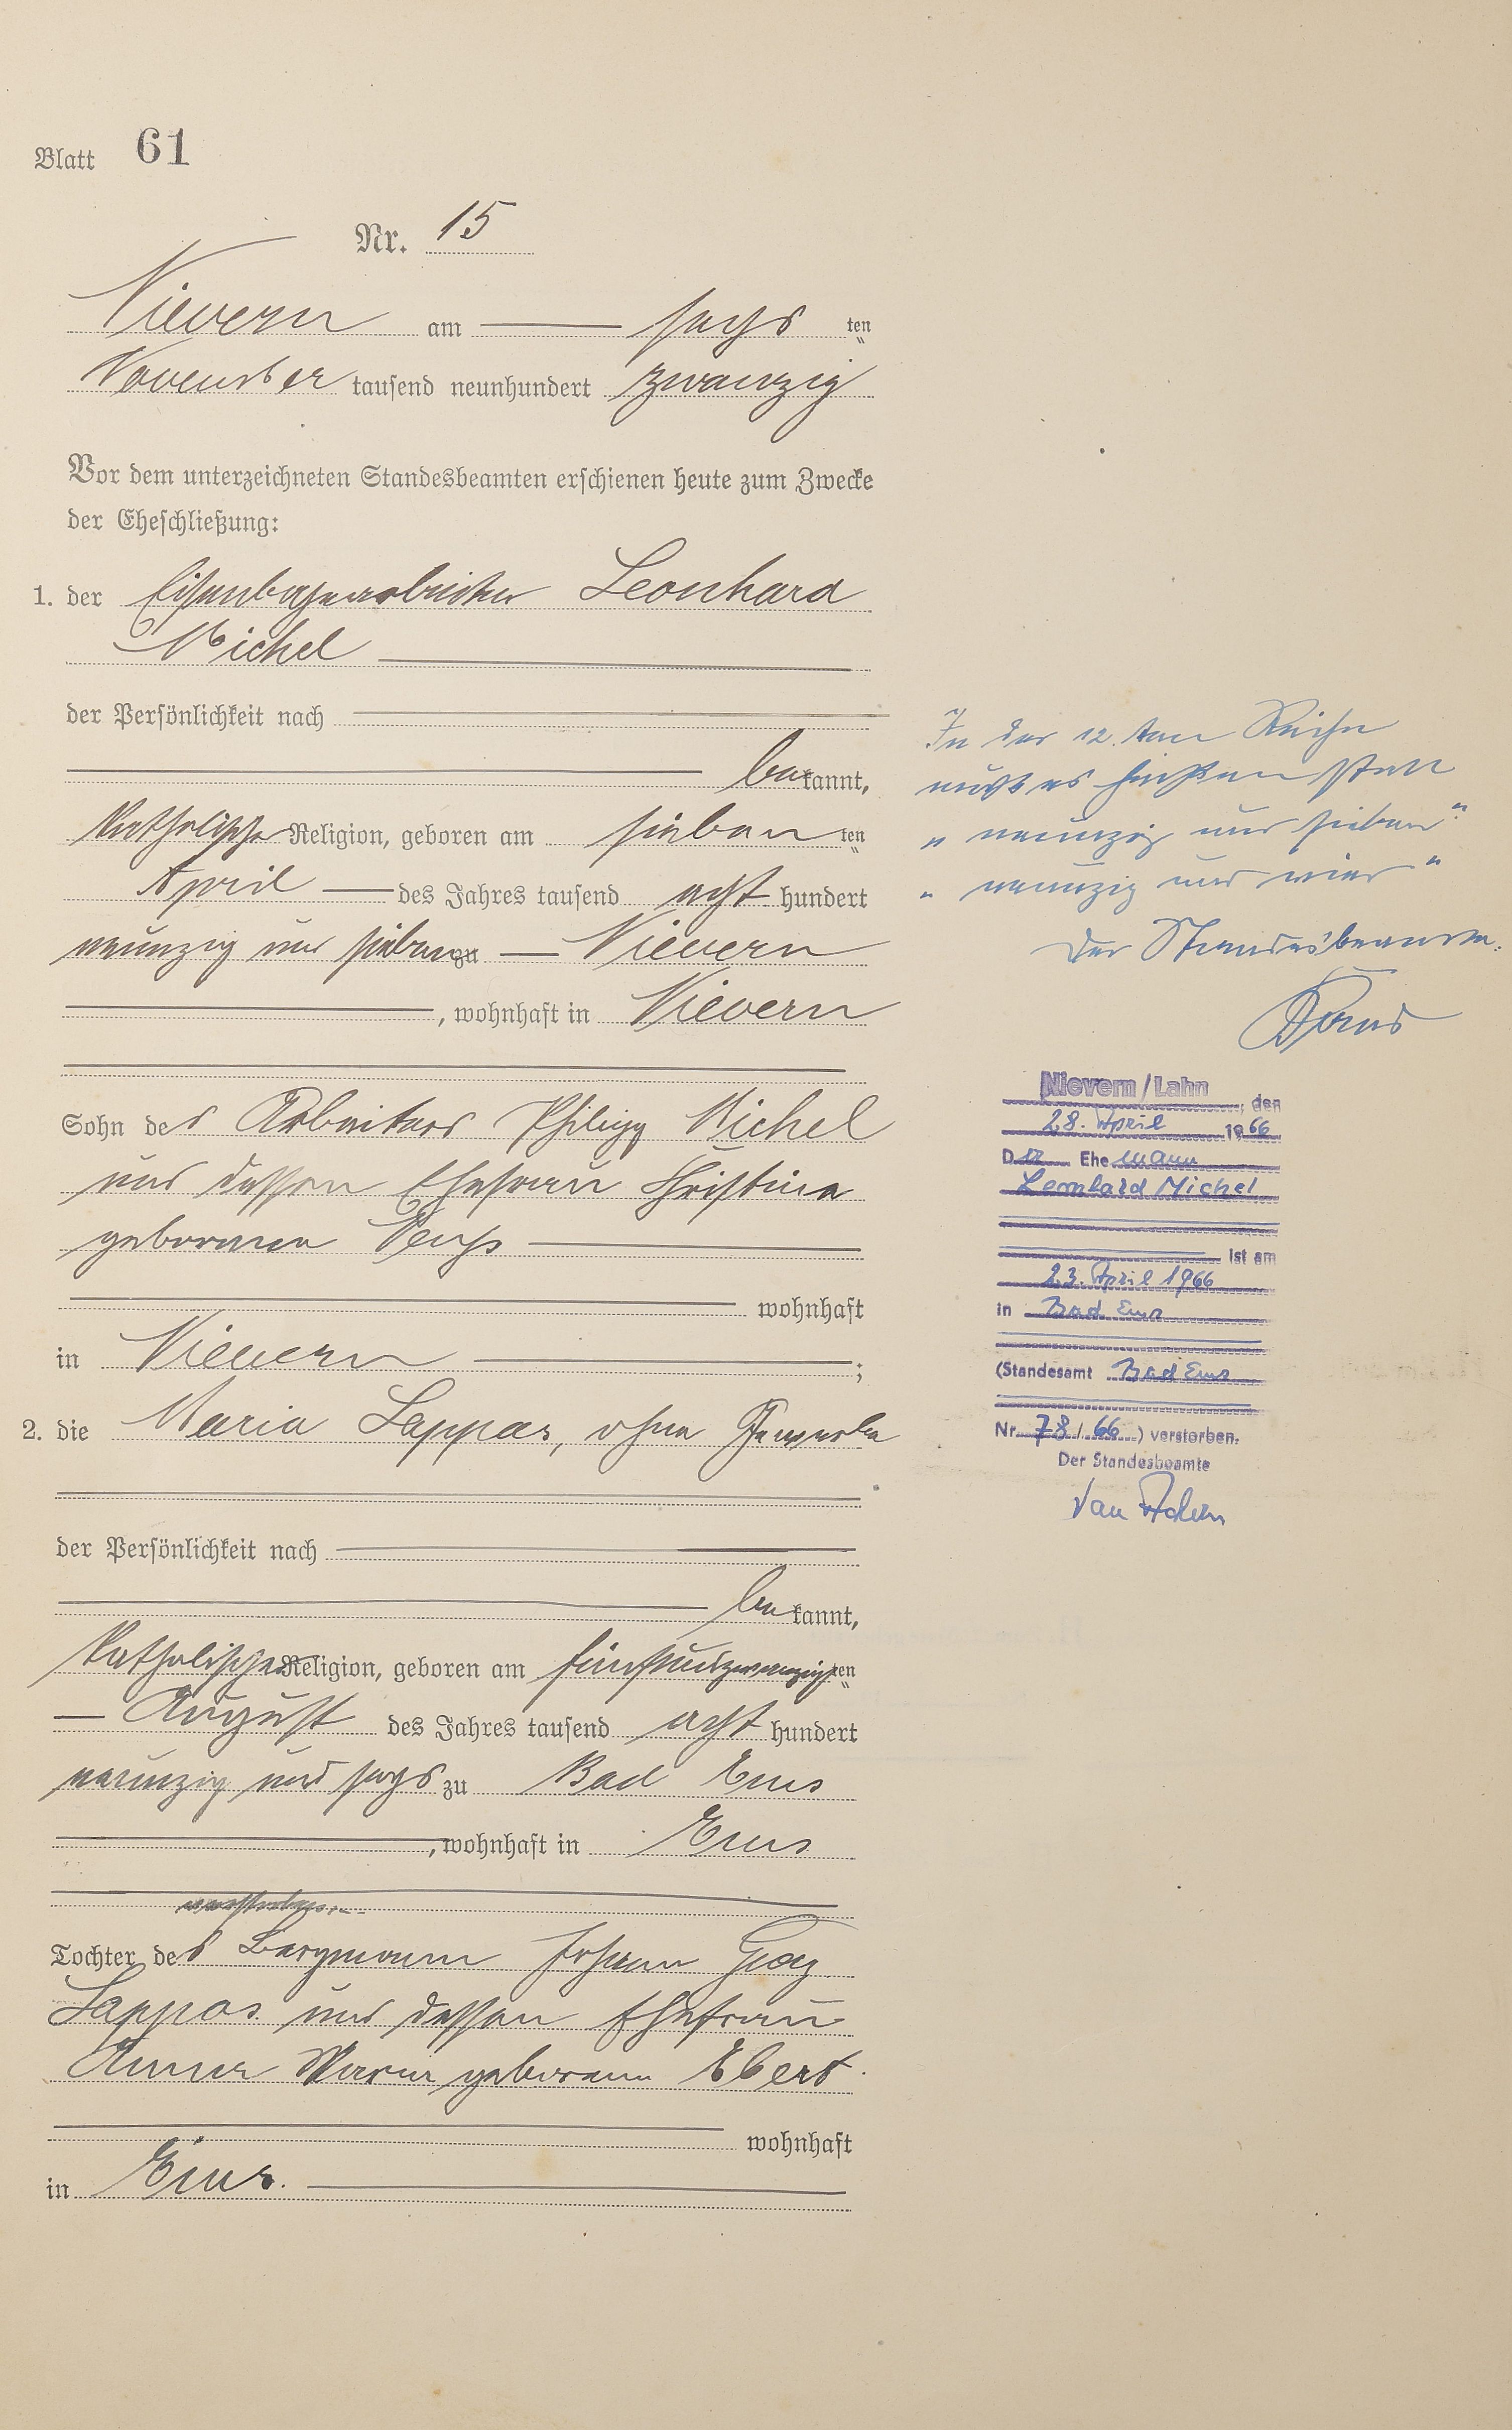 Blatt 61
Nr. 15
Nievern am sechs ten
November tausend neunhundert zwanzig
Vor dem unterzeichneten Standesbeamten erschienen heute zum Zwecke
der Eheschließung:
1. der Eisenbahnarbeiter Leonhard
Michel
der Persönlichkeit nach
bekannt,
katholische Religion, geboren am sieben ten
April des Jahres tausend acht hundert
neunzig und sieben zu Nievern
, wohnhaft in Nievern
Sohn des Arbeiters Philipp Michel
und dessen Ehefrau Christina
geborenen
wohnhaft
in Nievern ;
2. die Maria Lappas, ohne Gewerbe
der Persönlichkeit nach
bekannt,
katholischer Religion, geboren am fünfundzwanzigsten
August des Jahres tausend acht hundert
neunzig und sechs zu Bad Ems
, wohnhaft in Ems
Tochter des Bergmann Johann Georg
Lappas und dessen Ehefrau
Anna Maria geborene Ebert
wohnhaft
in Ems.
In der 12.ten Reihe
muß es heißen statt
„ neunzig und sieben "
„ neunzig und vier "
Der Standesbeamte.
Nievern/Lahn, den
28. April 1966
Der Ehemann
Leonhard Michel
ist am
23. April 1966
in Bad Ems
(Standesamt Bad Ems
Nr. 78 / 66 ) verstorben.
Der Standesbeamte